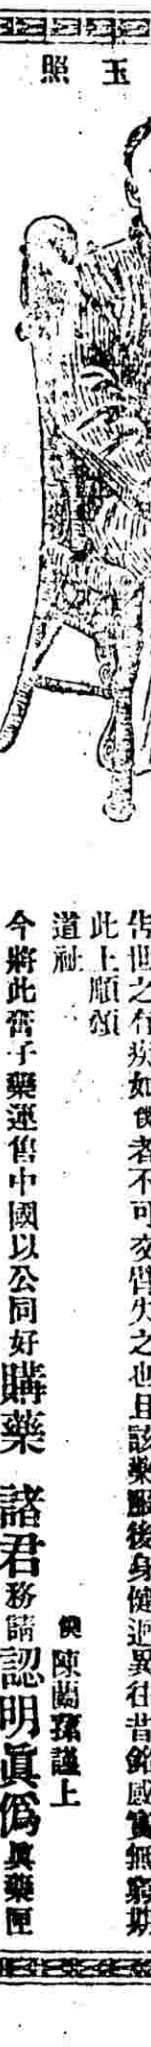 玉照
告世之有疾如僕者不可交臂失之也且該藥服後身健迥異往昔銘感實無窮期
此上順頌
道祉
僕陳蘭蓀謹上
今將此藥運售中國以公同好購藥諸君務請認明眞僞眞藥匣